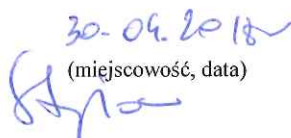 30.04.2018r
(miejscowość, data)